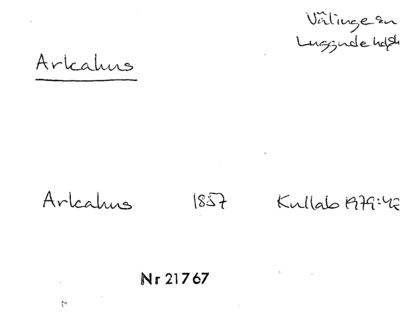 Välinge sn
Luggude hd, Sk
Arkahus
Arkahus 1857 Kullab 1979:42
Nr 21767